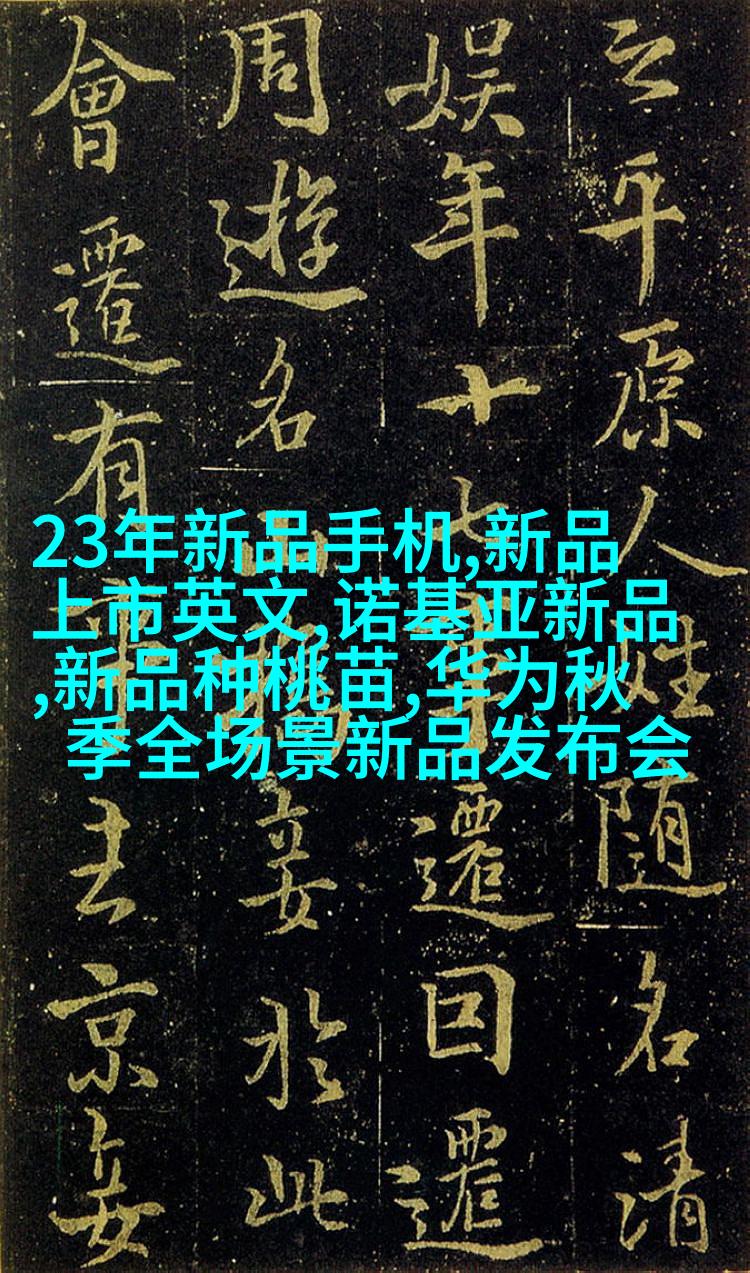 之平原人姓随名清
娱年十七遷回遷
周遊名山妾於此
會遷有去京妾
23年新品手机,新品
上市英文,诺基亚新品
,新品种桃苗,华为秋
季全场景新品发布会